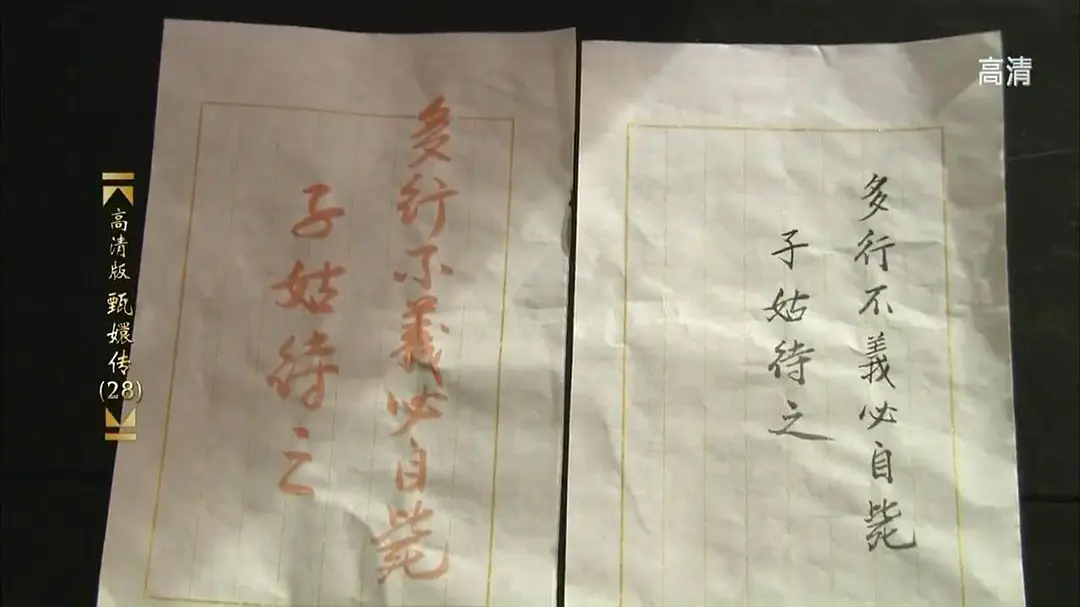 高清
高清版 甄嬛传
(28)
多行不義必自毙
子姑待之
多行不義必自毙
子姑待之